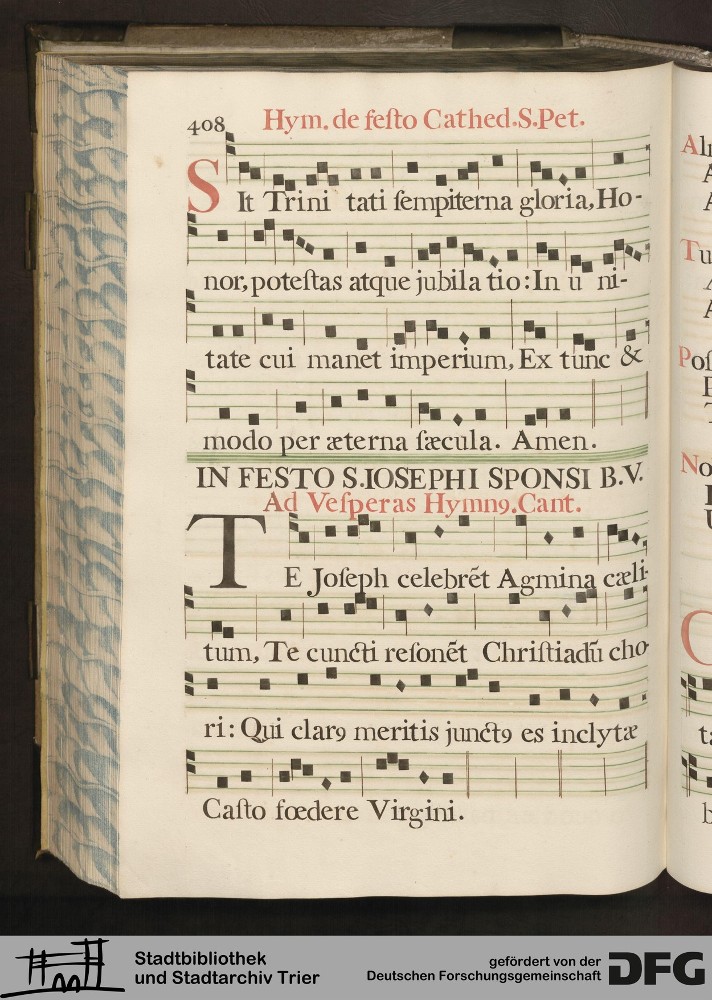 408 Hym. de feſto Cathed. S. Pet.
SIt Trini tati ſempiterna gloria, Ho-
nor, poteſtas atque jubila tio: In u ni-
tate cui manet imperium, Ex tunc &
modo per æterna ſæcula. Amen.
IN FESTO S. IOSEPHI SPONSI B. V.
Ad Veſperas Hymnꝰ. Cant.
TE Joſeph celebrēt Agmina cæli-
tum, Te cuncti reſonēt Chriſtiadū cho-
ri: Qui clarꝰ meritis junctꝰ es inclytæ
Caſto fœdere Virgini.
Stadtbibliothek
und Stadtarchiv Trier
gefördert von der
Deutschen Forschungsgemeinschaft
DFG